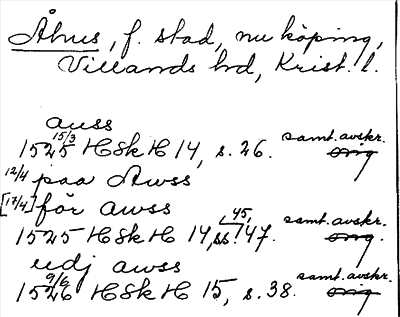 Åhus, f. stad, nu köping,
Villands hd, Krist. l.
auss
1525 15/3 HSkH 14, s. 26. samt. avskr. orig
12/4 paa Awss
[17/4] för awss
1525 HSkH 14, ss. 45, 47. samt. avskr. orig.
udj awss
1526 9/6 HSkH 15, s. 38. samt. avskr. orig